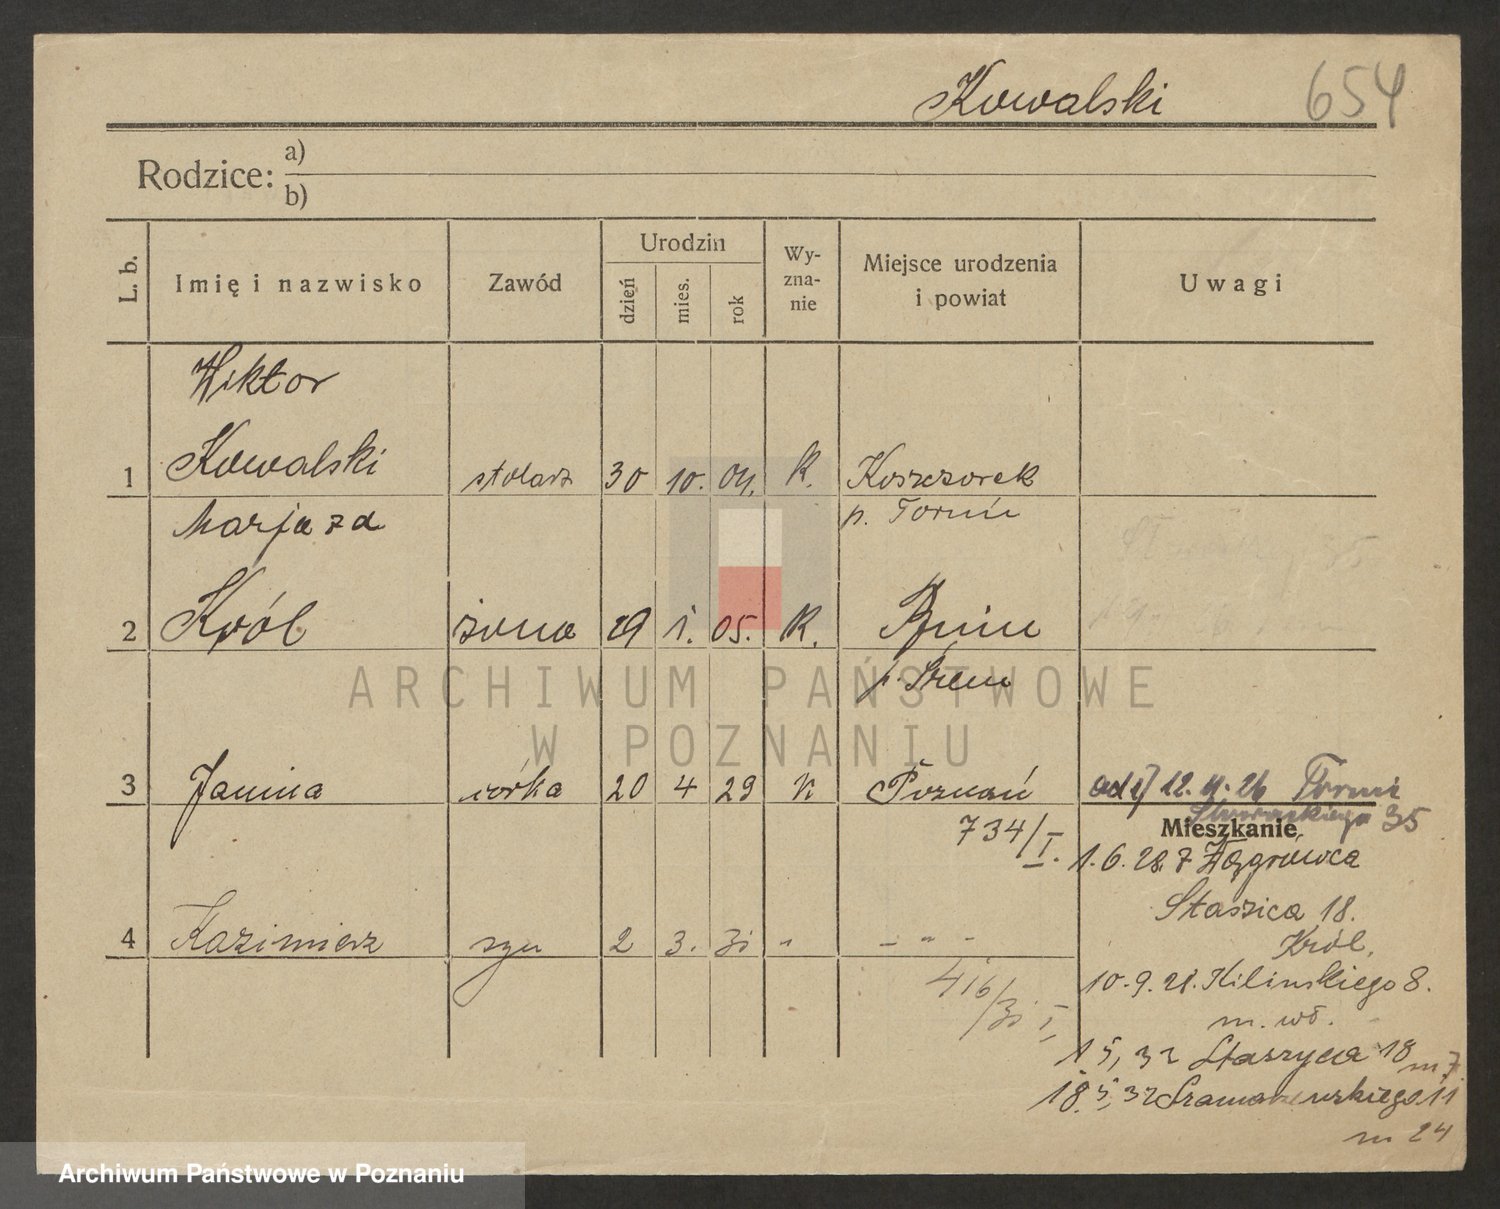 Kowalski 654
Rodzice: a)
b)
L. b. Imię i nazwisko Zawód Urodzin dzień mies. rok Wy-zna-nie Miejsce urodzenia i powiat Uwagi
Wiktor
1 Kowalski stolarz 30 10. 04. K. Koszczorek
p. Toruń
Marja zd
2 Król żona 29 1. 05. K. Bnin
p. Śrem
3 Janina córka 20 4 29 K Poznań od 12. 4. 26 Toruń
35
734/I.
Mieszkanie
1. 6. 28 z Wągrówca
Staszica 18.
4 Kazimierz syn 2 3. 31 " - " -
Król.
416/31 I,
10. 9. 28. Kilińskiego 8.
m. wł.
1 5, 32 Staszyca 18 m. 7
18. 5, 32 11
m 24
ARCHIWUM PAŃSTWOWE
W POZNANIU
Archiwum Państwowe w Poznaniu